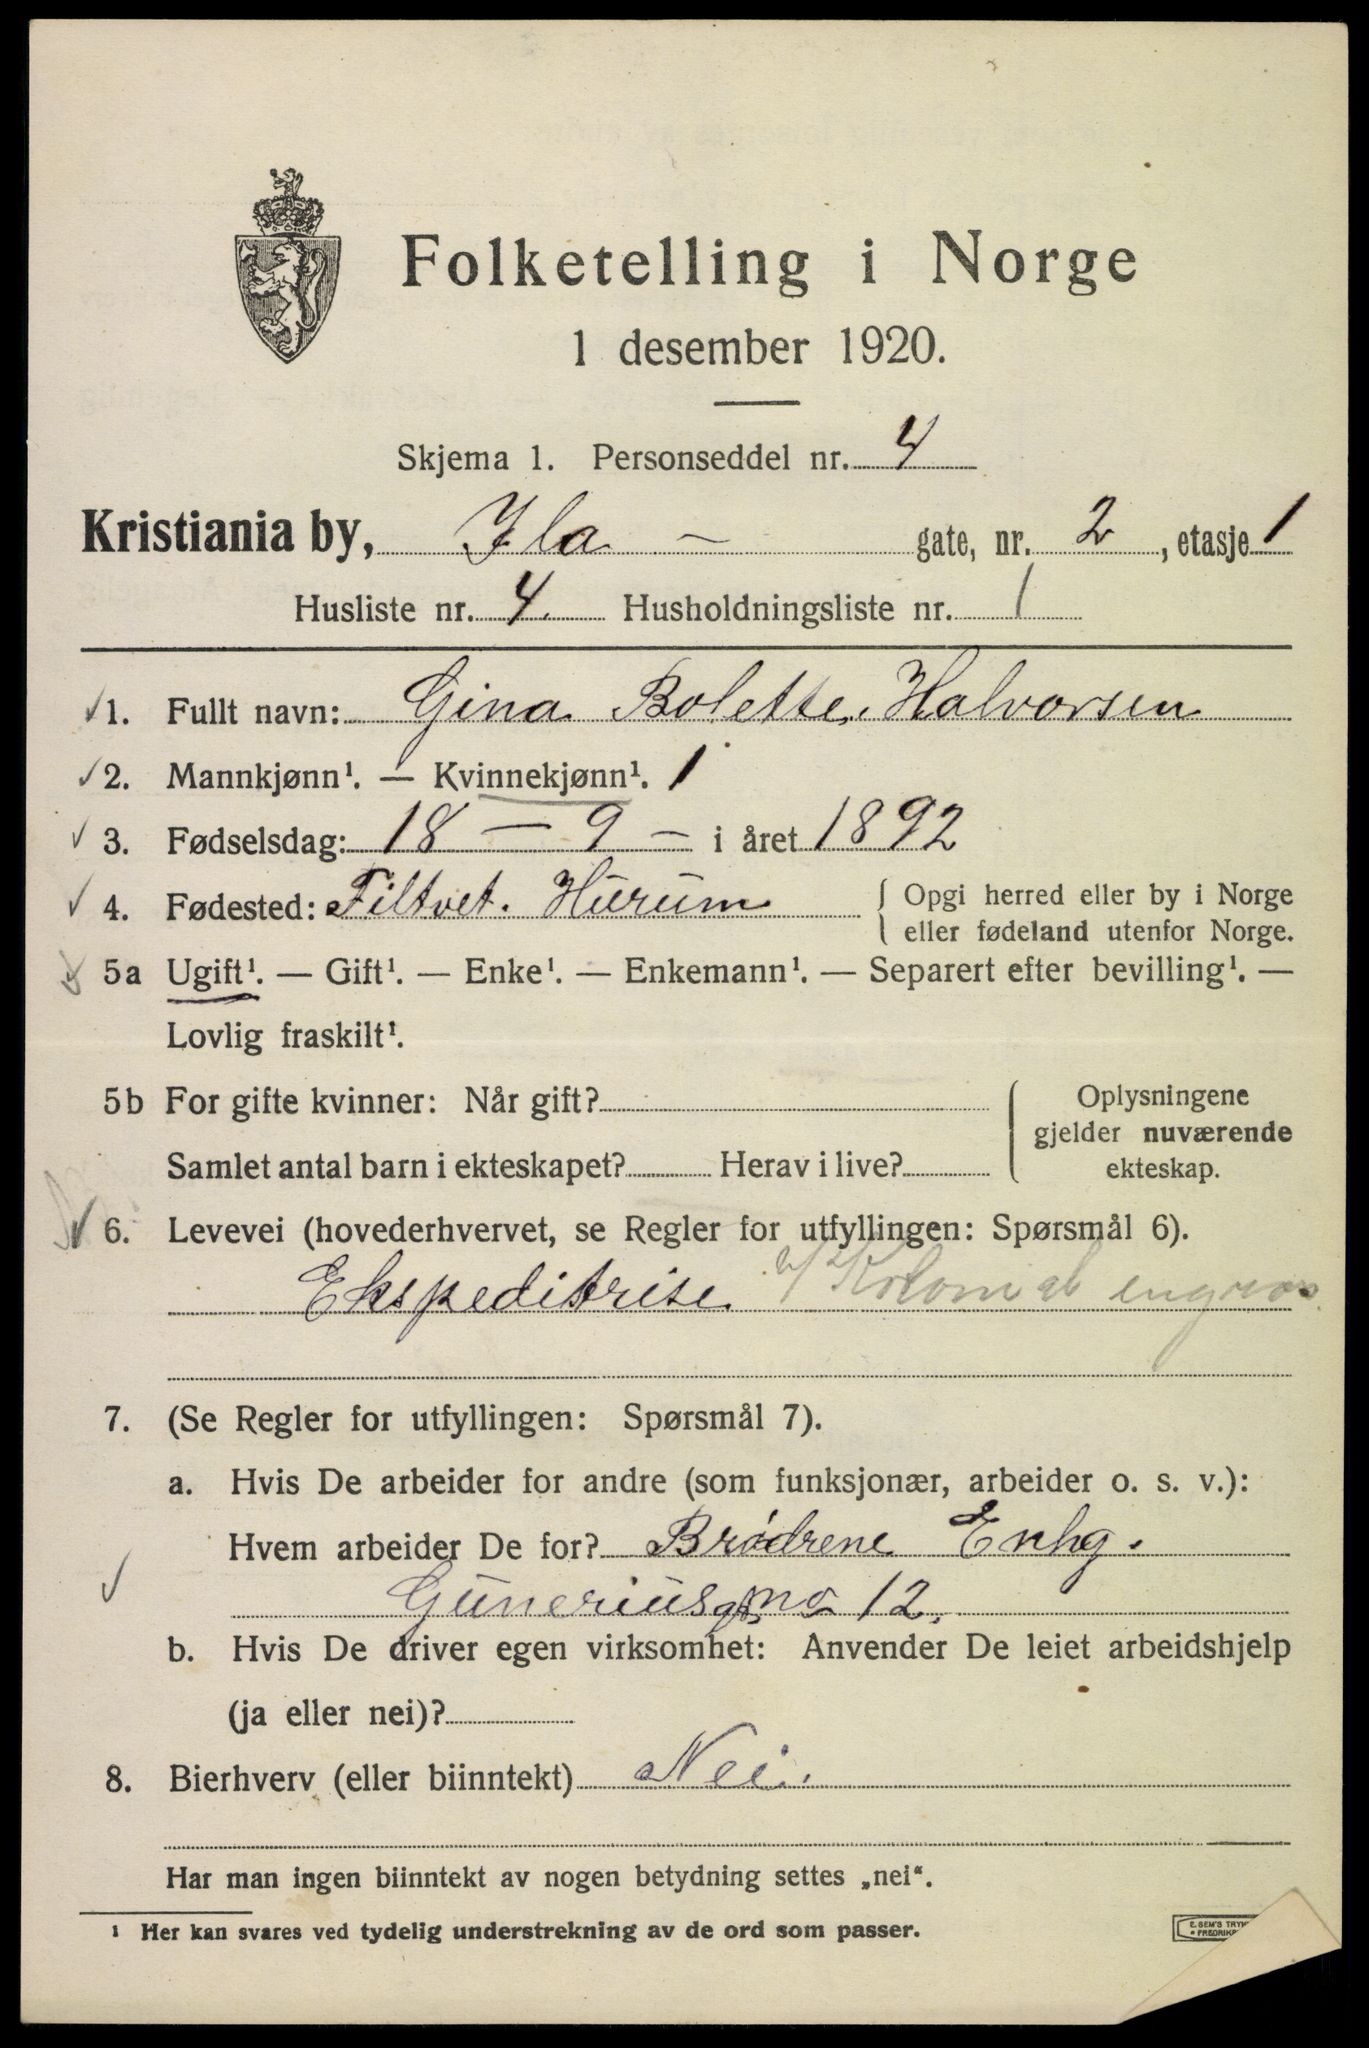 Folketelling i Norge
1 desember 1920.
Skjema 1. Personseddel nr. 4
Kristiania by, Ila - gate, nr. 2, etasje 1
Husliste nr. 4. Husholdningsliste nr. 1
1. Fullt navn: Gina Bolette Halvorsen
2. Mannkjønn¹. — Kvinnekjønn¹. 1
3. Fødselsdag: 18 — 9 — i året 1892
4. Fødested: Filtvet. Hurum { Opgi herred eller by i Norge
eller fødeland utenfor Norge.
5a Ugift¹. — Gift¹. — Enke¹. — Enkemann¹. — Separert efter bevilling¹. —
Lovlig fraskilt¹.
5b For gifte kvinner: Når gift? ( Oplysningene
gjelder nuværende
Samlet antal barn i ekteskapet? Herav i live? ekteskap.
6. Levevei (hovederhvervet, se Regler for utfyllingen: Spørsmål 6).
Ekspeditrise v/ Kolonial engros
7. (Se Regler for utfyllingen: Spørsmål 7).
a. Hvis De arbeider for andre (som funksjonær, arbeider o. s. v.):
Hvem arbeider De for? Brødrene
Guneriusgt no 12.
b. Hvis De driver egen virksomhet: Anvender De leiet arbeidshjelp
(ja eller nei)?
8. Bierhverv (eller biinntekt) Nei.
Har man ingen biinntekt av nogen betydning settes „nei“.
¹ Her kan svares ved tydelig understrekning av de ord som passer.
E. SEM'S